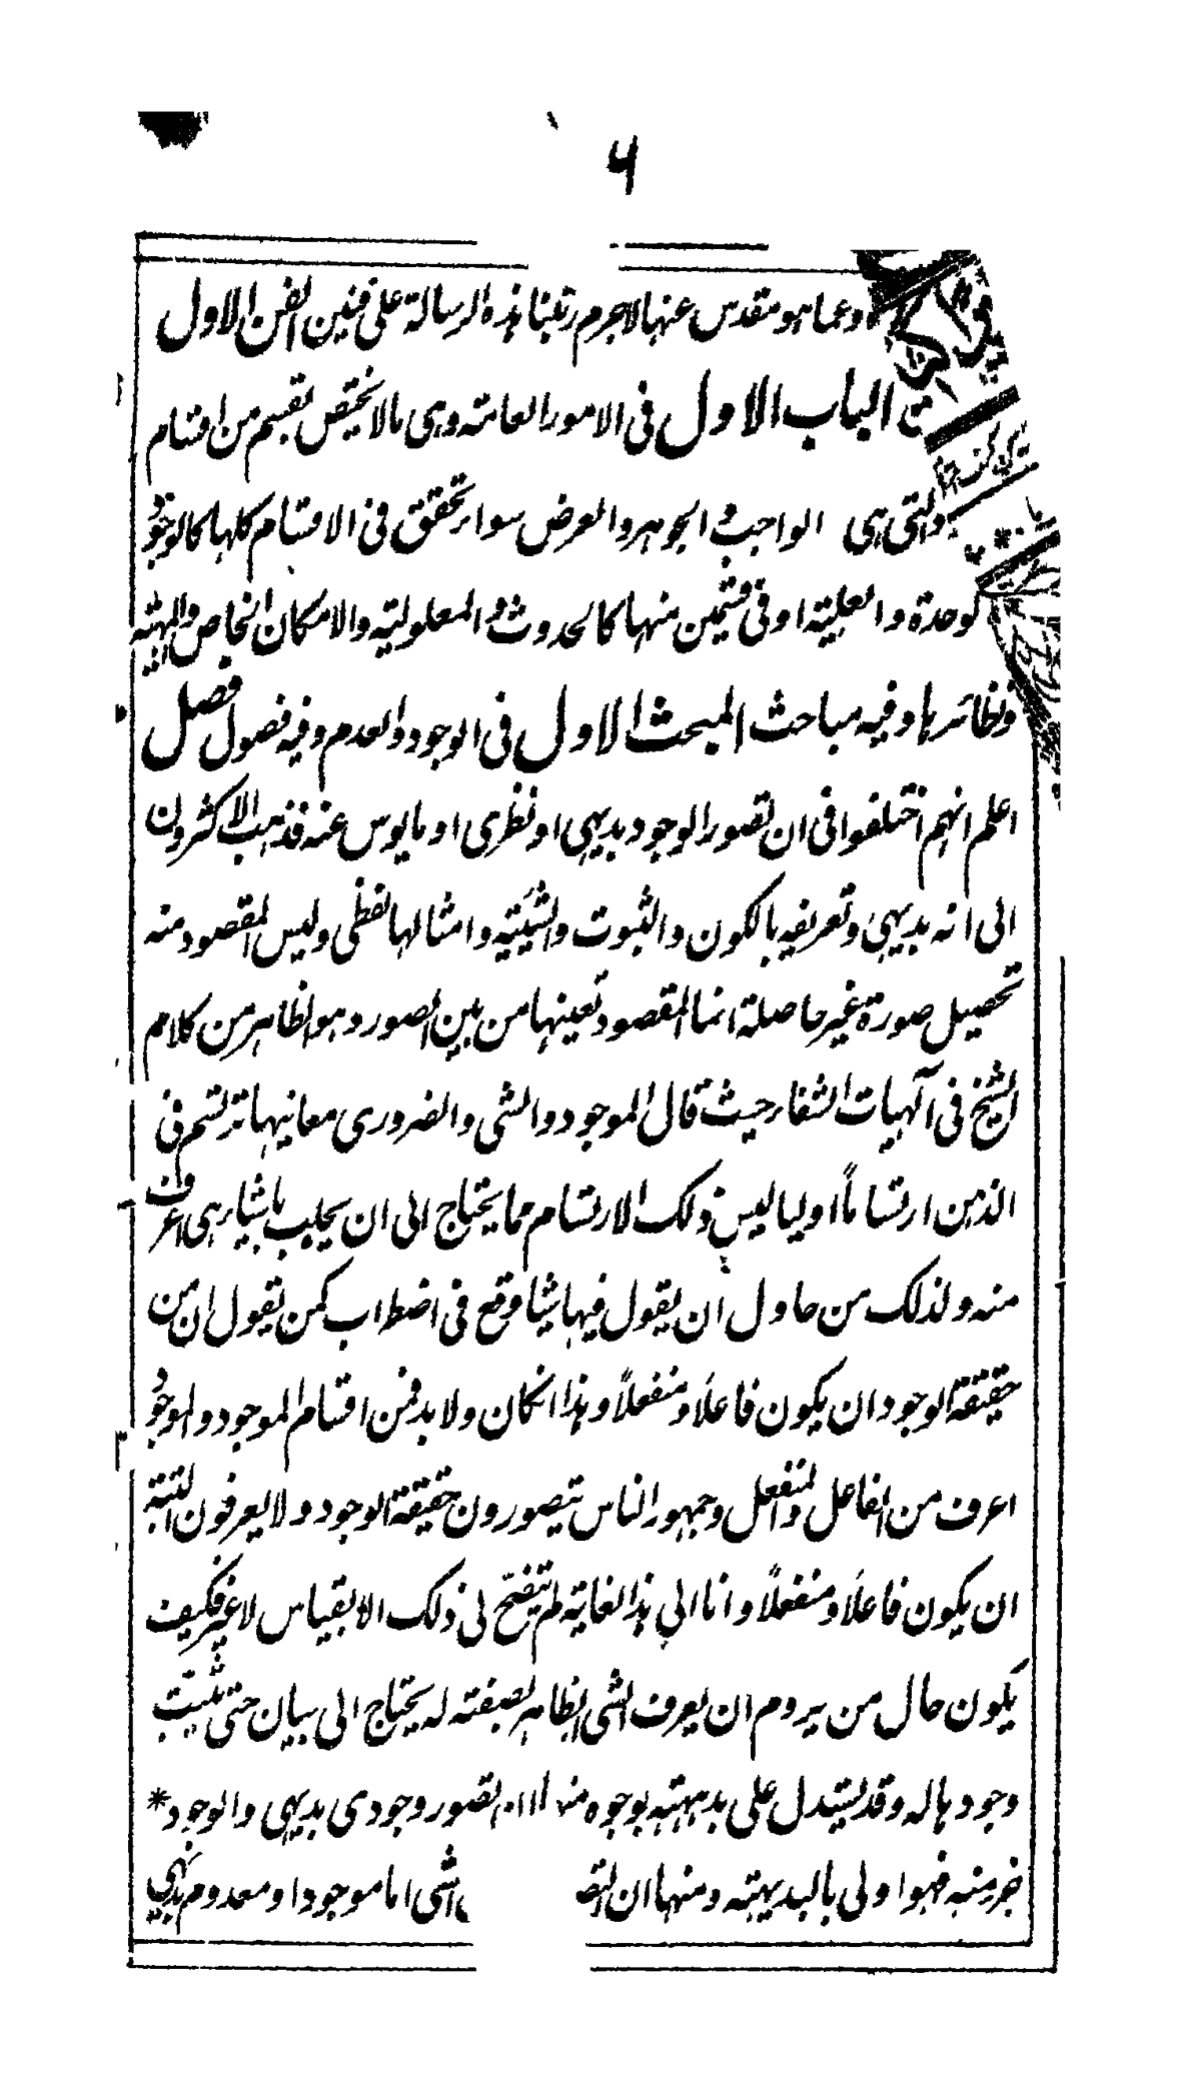 ۶
وعما هو مقدس عنها لاجرم رتبنا هذه الرسالة على فنين الفن الاول
الباب الاول فى الامور العامة وهى مالا يختص بقسم من اقسام
والتى هى الواجب والجوهر والعرض سواء تحقق فى الاقسام كلها كالوجود
لوحدة والعلية او فى قسمين منها كالحدوث والمعلولية والامكان الخاص والمهية
ونظائرها وفيه مباحث المبحث الاول فى الوجود والعدم وفيه فصول فصل
اعلم انهم اختلفوا فى ان تصور الوجود بديهى او نظرى او مايوس عنه فذهب الاكثرون
الى انه بديهى وتعريفه بالكون والثبوت والشيئية وامثالها لفظى وليس المقصود منه
تحصيل صورة غير حاصلة انما المقصود تعينها من بين الصور وهو الظاهر من كلام
الشيخ فى آلهيات الشفاء حيث قال الموجود والشى والضرورى معانيها ترتسم فى
الذهن ارتساماً اوليا ليس ذلك الارتسام مما يحتاج الى ان يجلب باشياء هى اعرف
منه ولذلك من حاول ان يقول فيها شيئا وقع فى اضطراب كمن يقول ان من
حقيقة الوجود ان يكون فاعلاً ومنفعلاً وهذا انكان ولا بد فمن اقسام الموجود والوجود
اعرف من الفاعل والمنفعل وجمهور الناس يتصورون حقيقة الوجود ولا يعرفون البتة
ان يكون فاعلاً ومنفعلاً وانا الى هذا الغاية لم يتضح لى ذلك الا بقياس لا غير فكيف
يكون حال من يروم ان يعرف الشى الظاهر بصفته له يحتاج الى بيان حتى يثبت
وجودها له وقد يستدل على بديهته بوجوه منها ان تصور وجودى بديهى والوجود *
جزء منه فهو اولى بالبديهته ومنها ان التصـ الشى اما موجود او معدوم بديهى